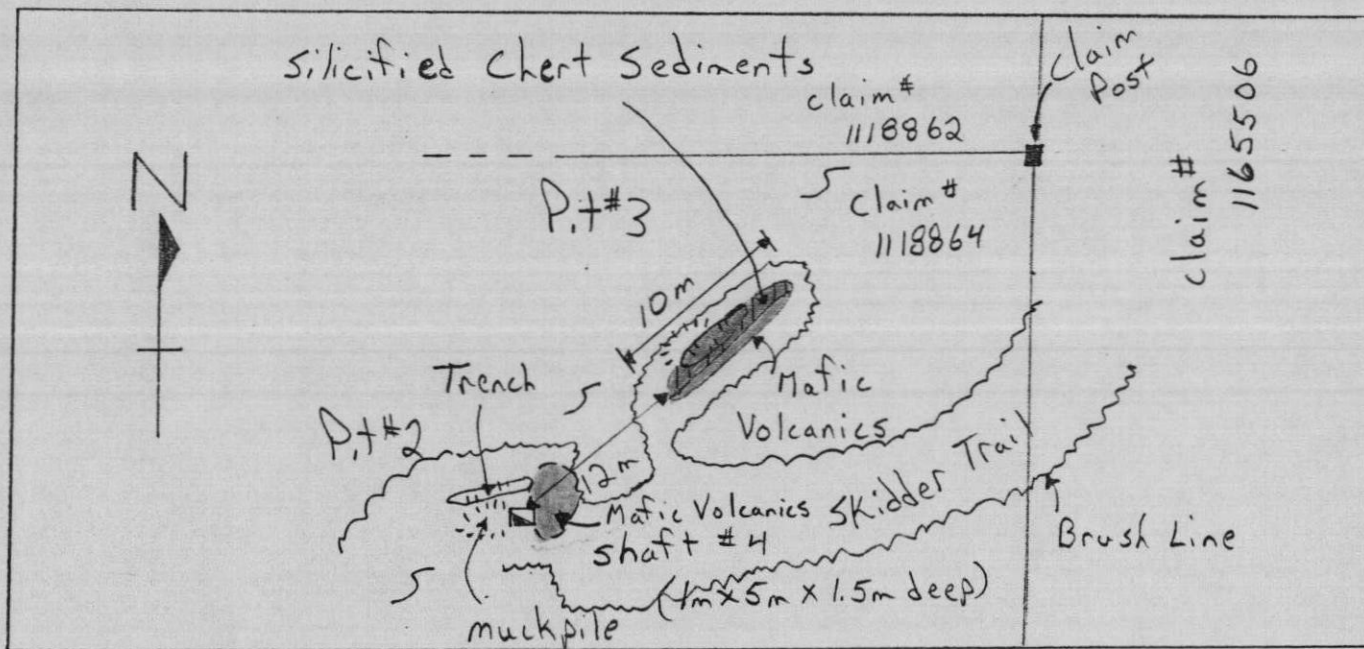 Silicified Chert Sediments
Claim Post
claim #
1118862
Claim #
1118864
claim #
1165506
N
Pit #3
10m
Trench
Mafic
Volcanics
Pit #2
12m
Mafic Volcanics
Shaft #4
Skidder Trail
Brush Line
(4m x 5m x 1.5m deep)
muckpile